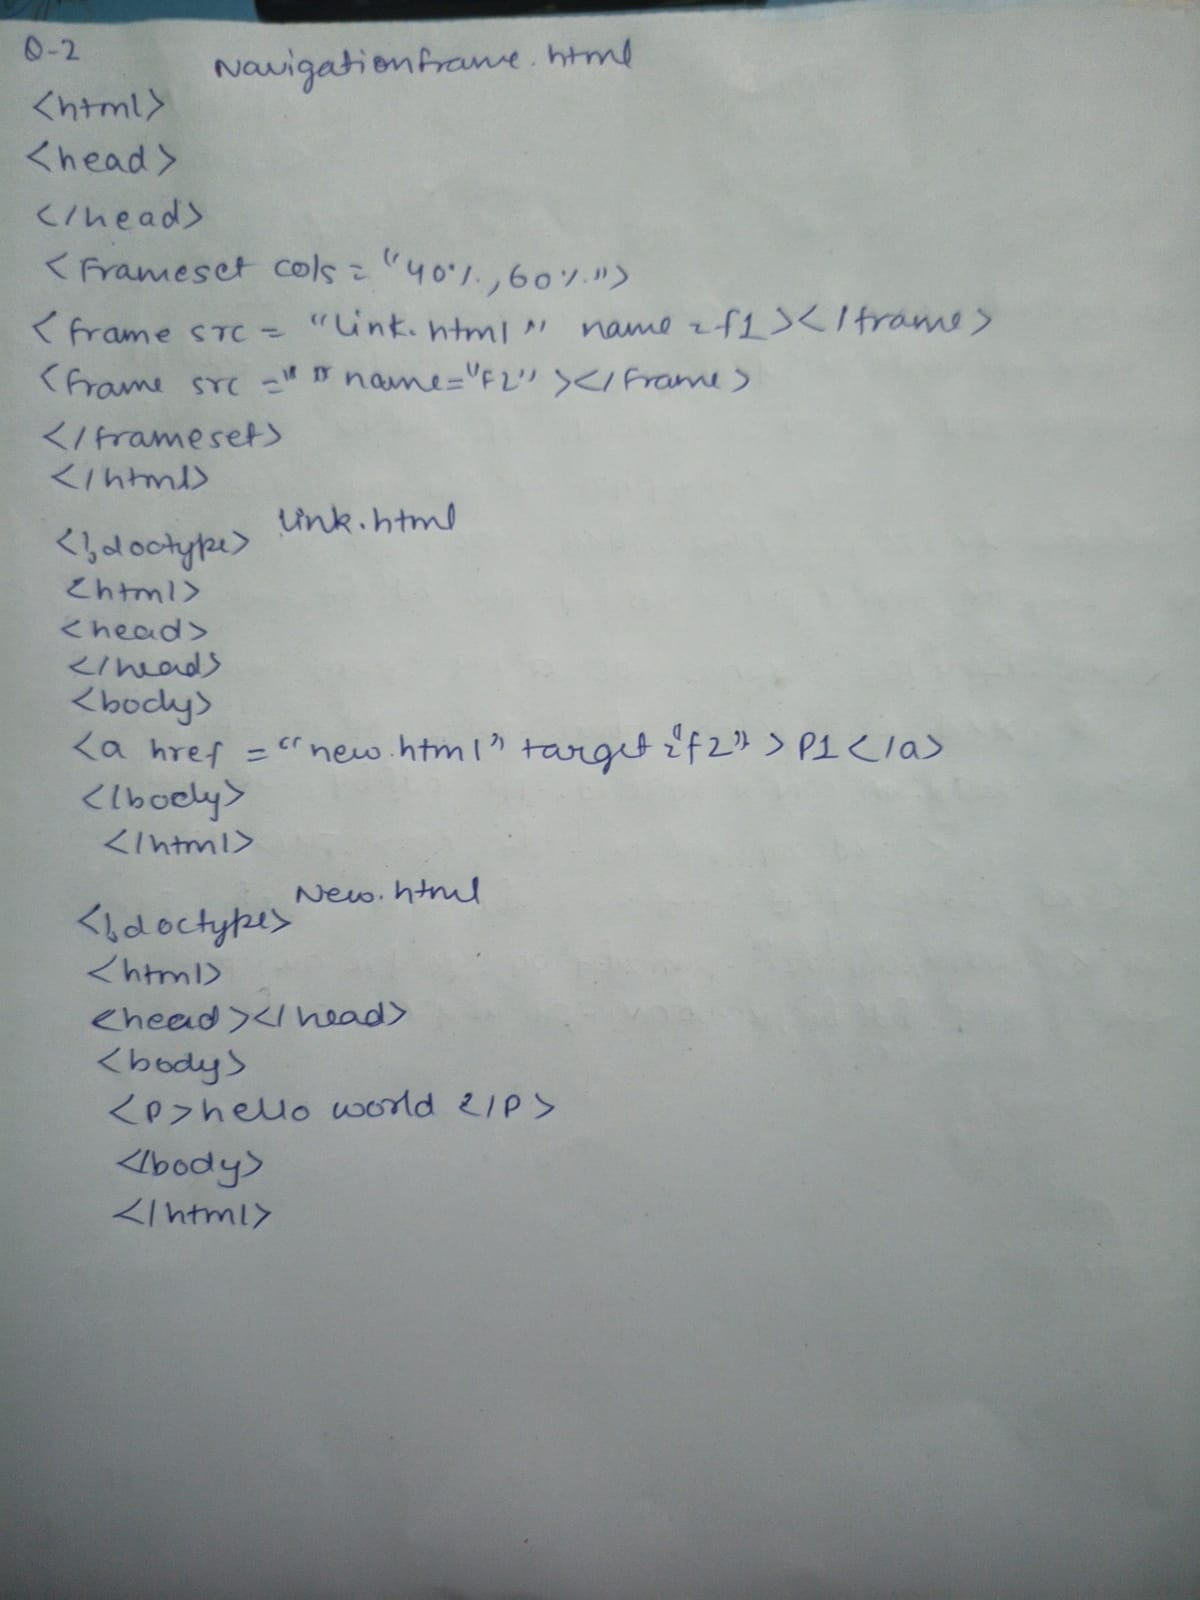 Q-2
Navigationframe.html
<html>
<head>
</head>
<frameset cols="40%,60%">
<frame src="link.html" name=f1></frame>
<frame src=" " name="f2"></frame>
</frameset>
</html>
link.html
<!doctype>
<html>
<head>
</head>
<body>
<a href="new.html" target="f2">P1</a>
</body>
</html>
New.html
<!doctype>
<html>
<head></head>
<body>
<p>hello world </p>
</body>
</html>